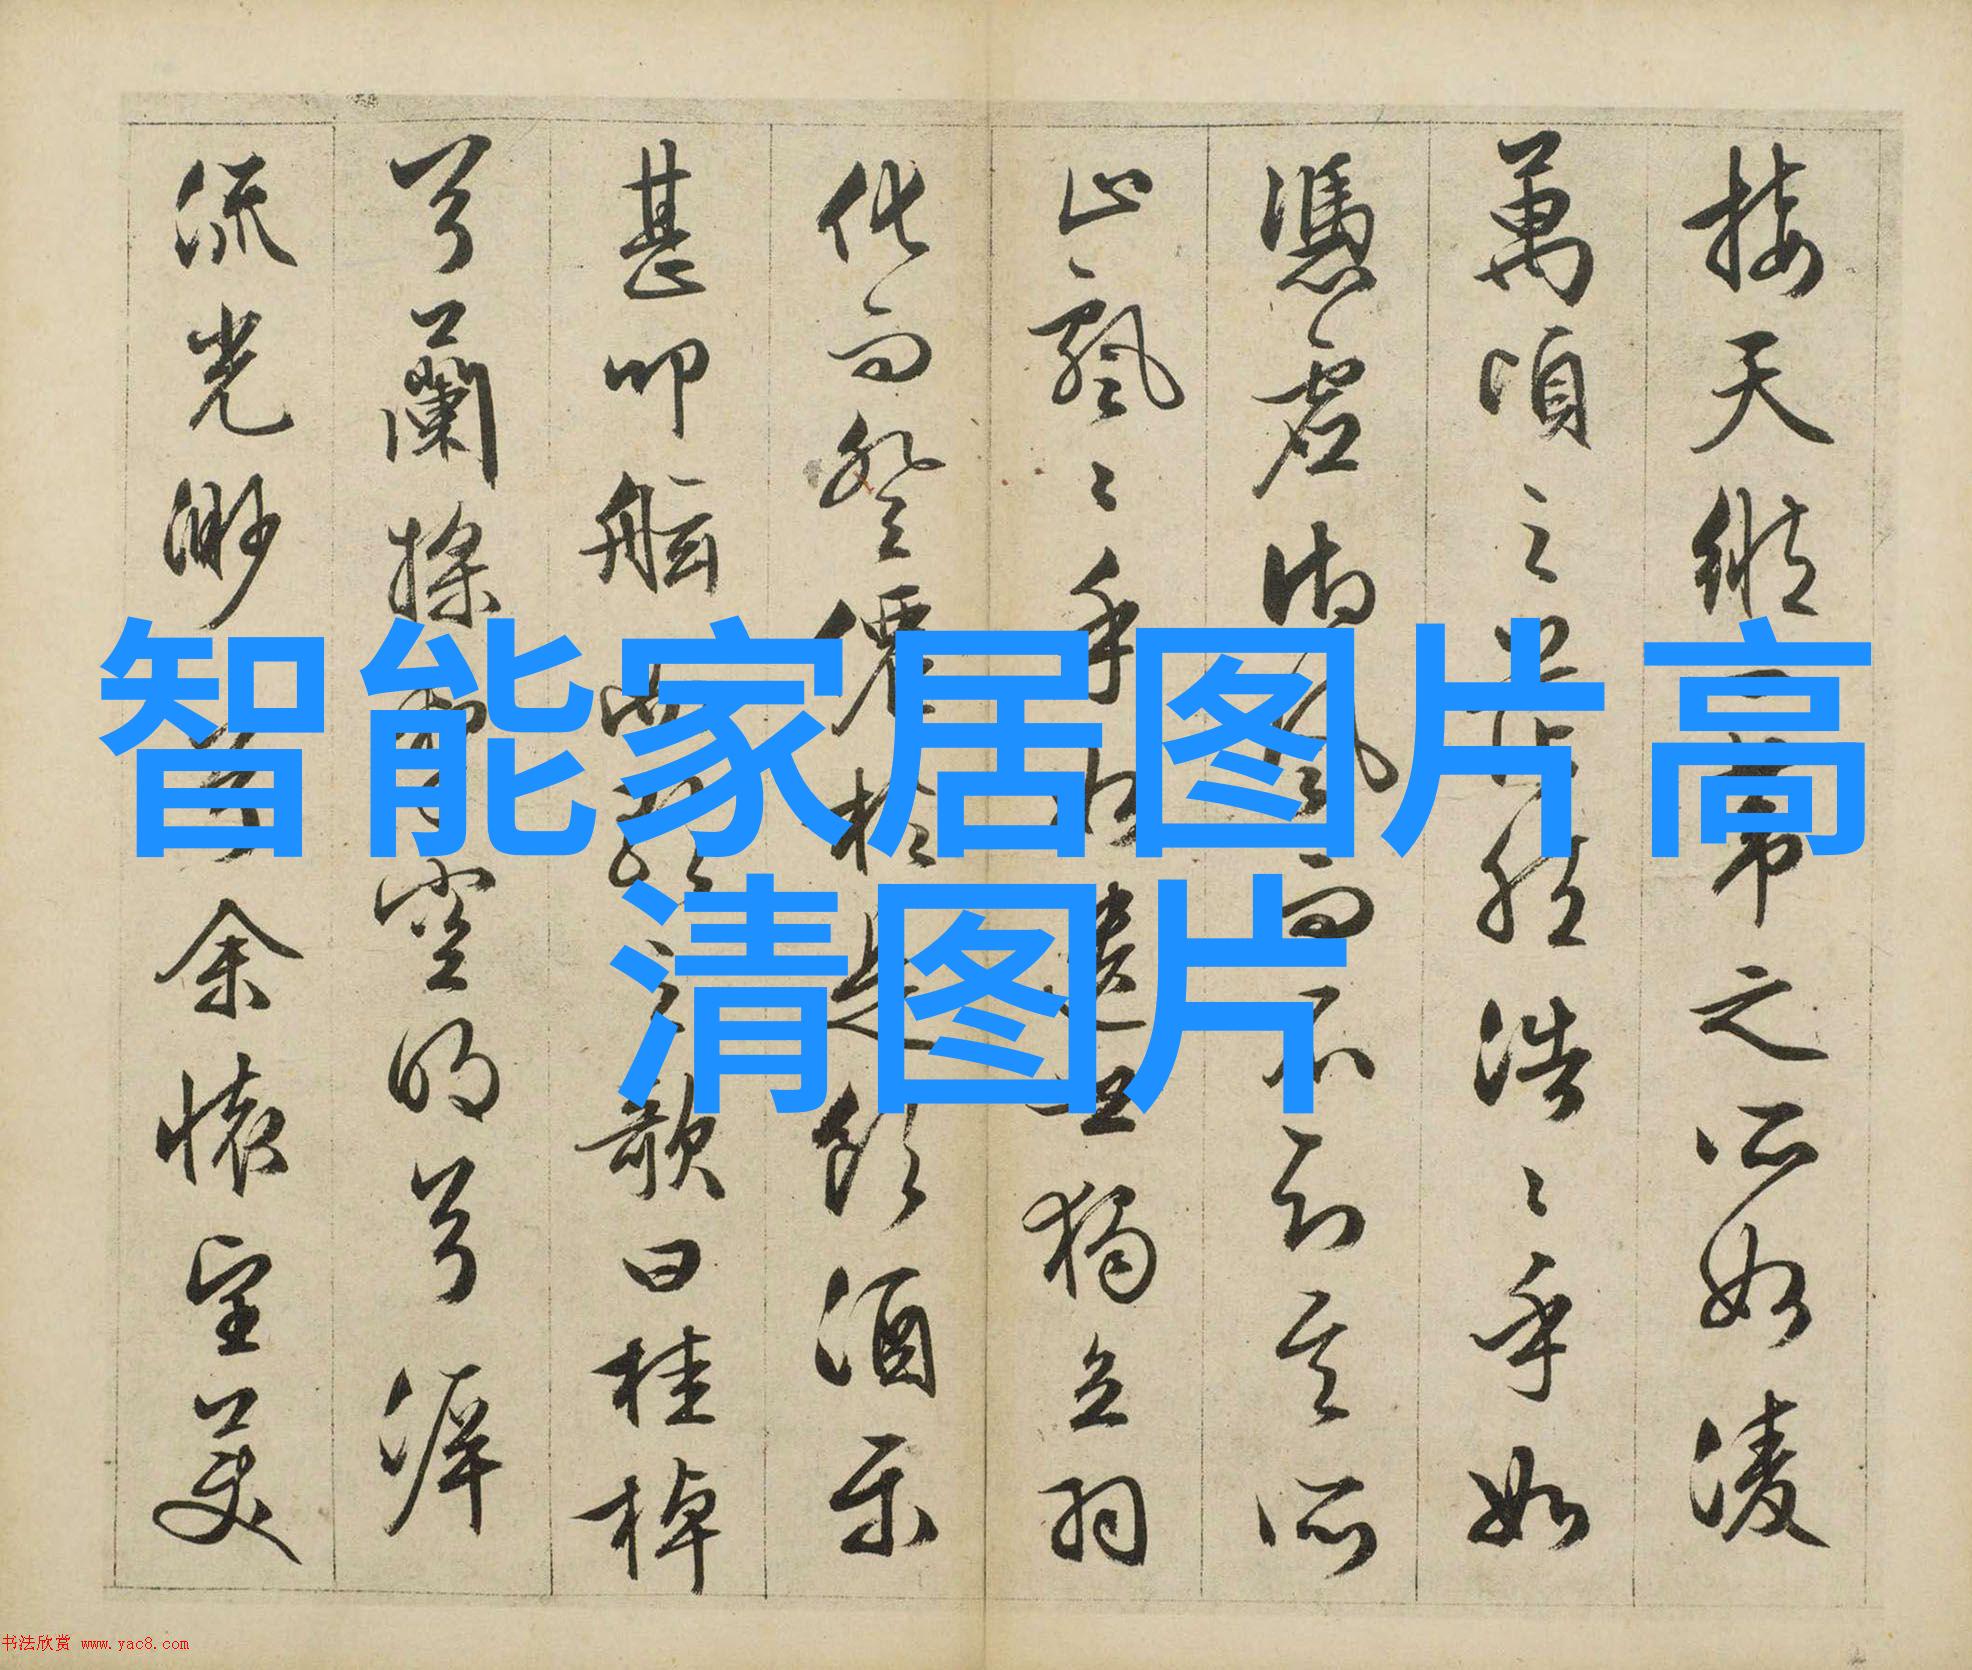 接天縱一葦之所如凌
萬頃之茫然浩〻乎如
憑虛御風而不知其所
止飄〻乎如遺世獨立羽
化而登僊於是飲酒樂
甚叩舷歌曰桂棹
兮蘭槳擊空明兮泝
流光渺兮余懷望美
智能家居图片高
清图片
书法欣赏 www.yac8.com